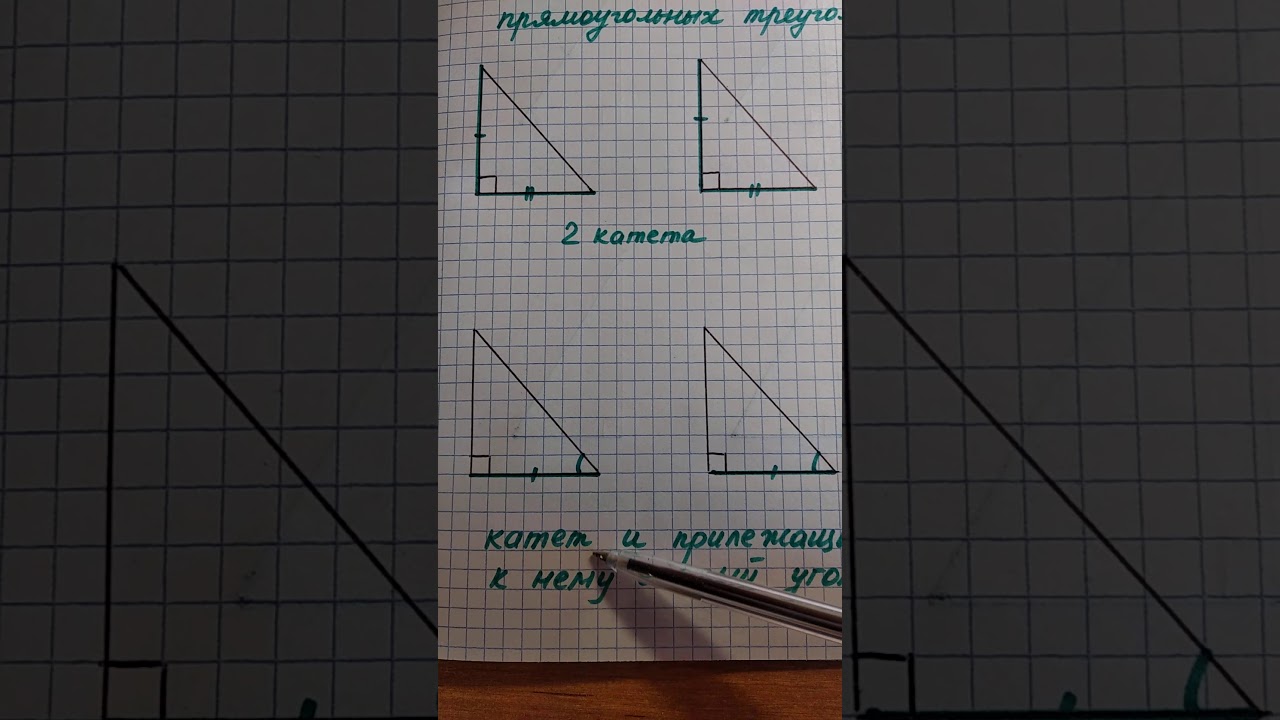 прямоугольных треуго
2 катета
катет и прилежащ
к нему уго